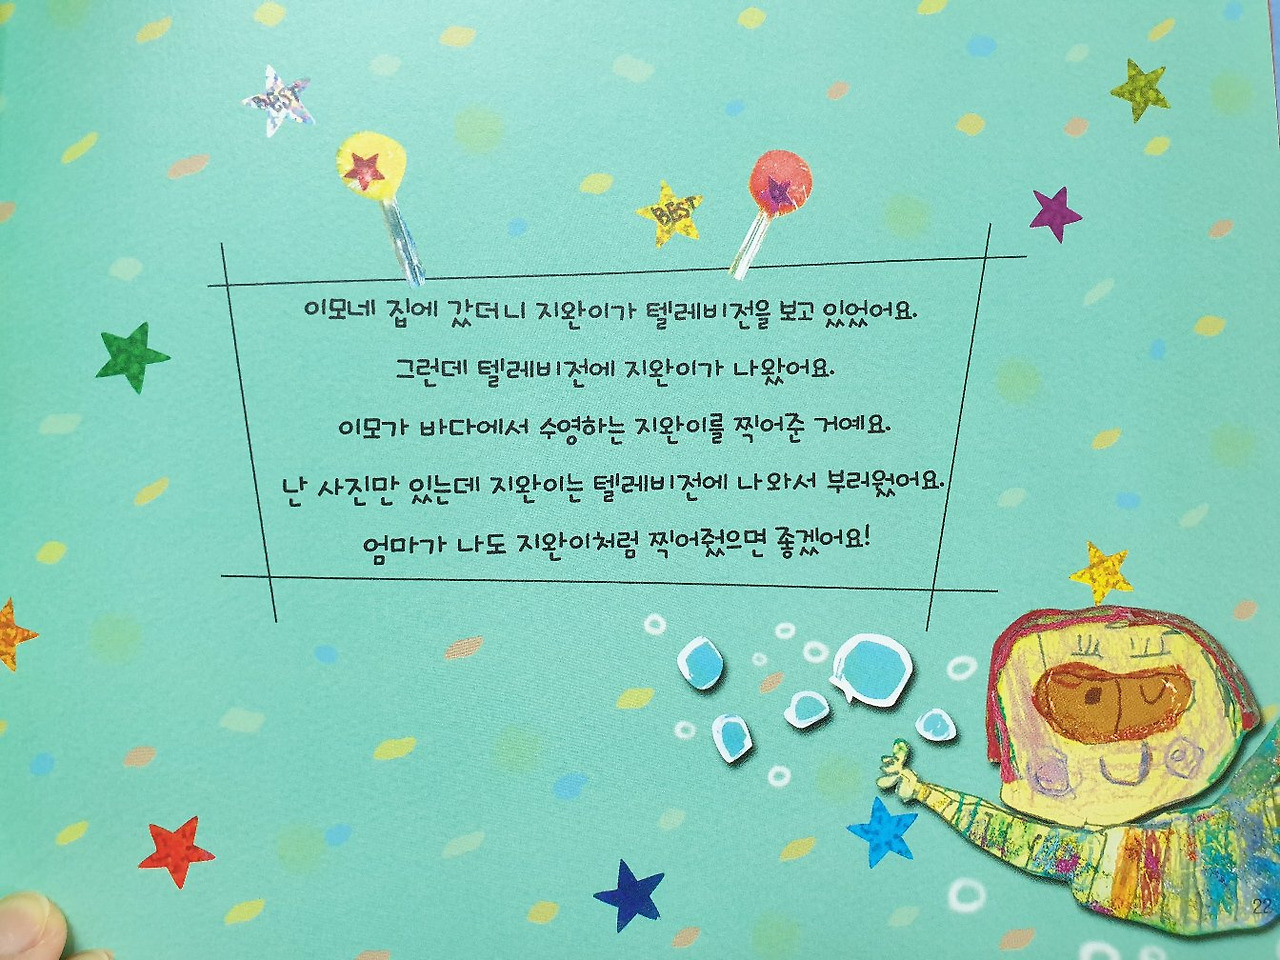 BEST
BEST
이모네 집에 갔더니 지완이가 텔레비전을 보고 있었어요.
그런데 텔레비전에 지완이가 나왔어요.
이모가 바다에서 수영하는 지완이를 찍어준 거예요.
난 사진만 있는데 지완이는 텔레비전에 나와서 부러웠어요.
엄마가 나도 지완이처럼 찍어줬으면 좋겠어요!
22